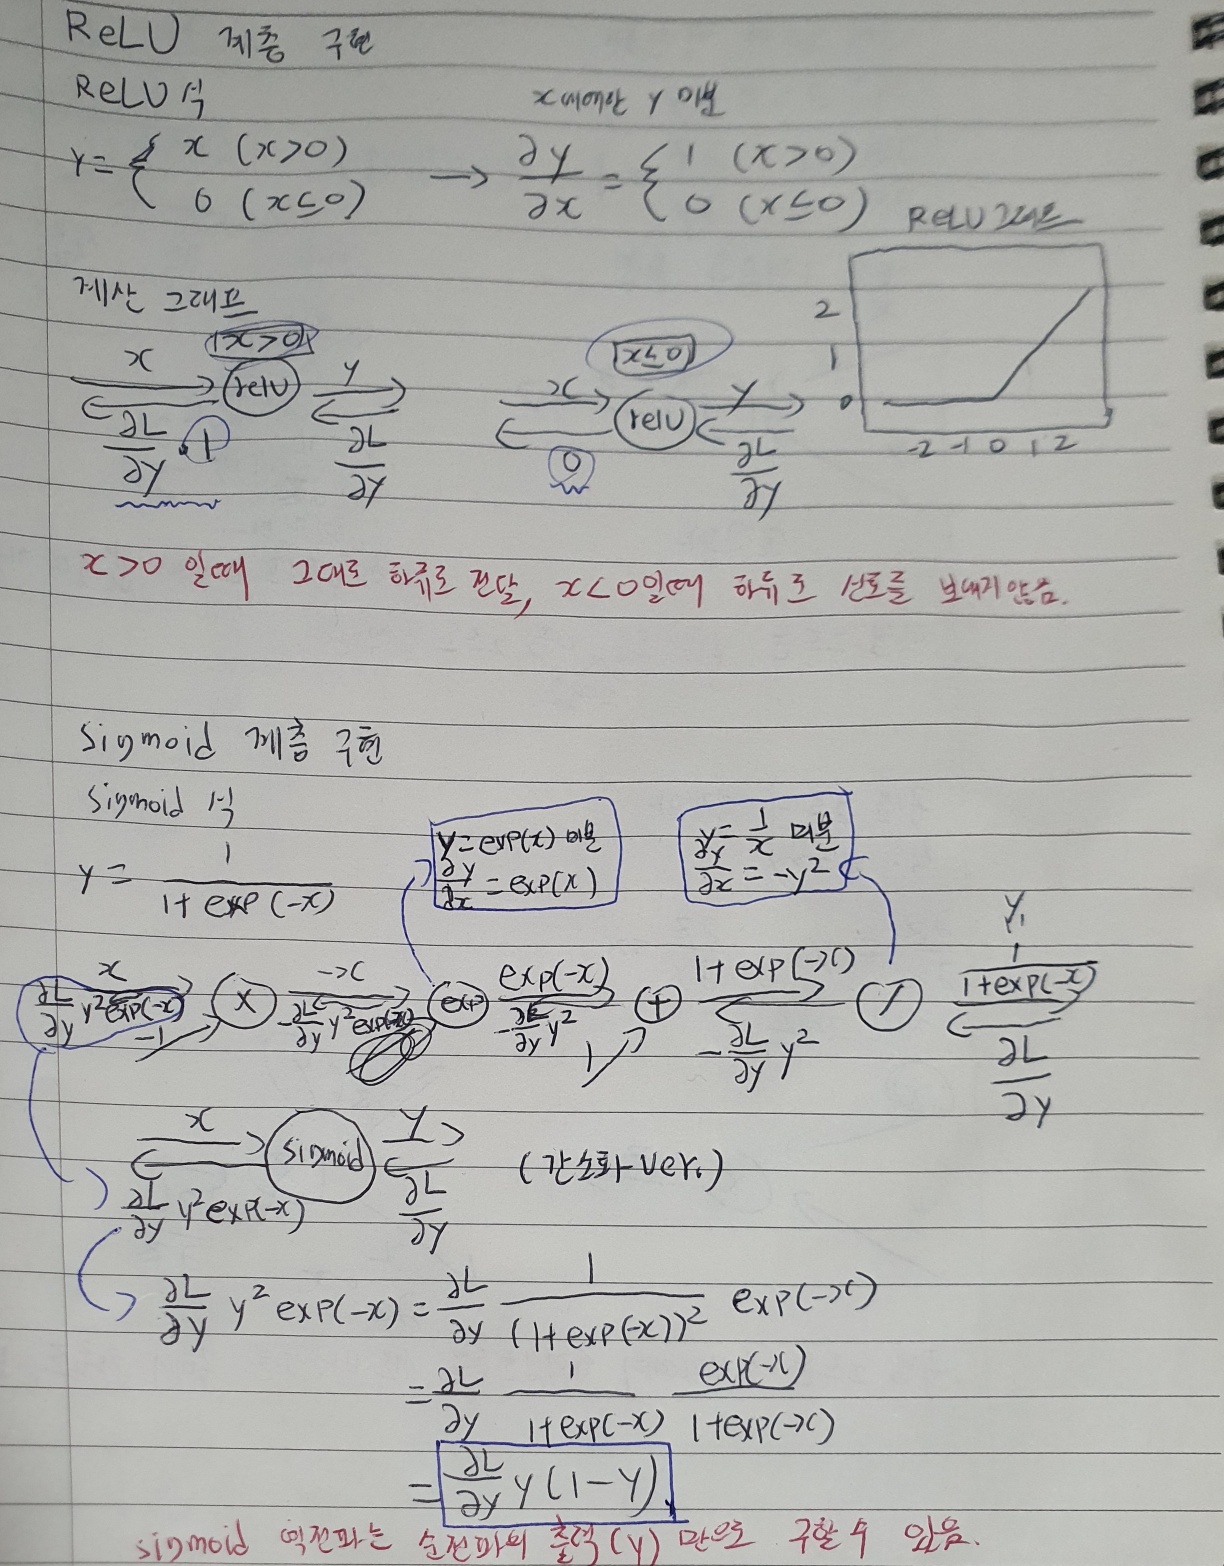 ReLU 계층 구현
ReLU 식
x에 관한 y 미분
y = { x (x>0)
0 (x≤0)
→ ∂y/∂x = { 1 (x>0)
0 (x≤0)
ReLU 그래프
2
1
0
-2 -1 0 1 2
계산 그래프
x>0
x relu y
∂L/∂y · 1 ∂L/∂y
x≤0
x relu y
0 ∂L/∂y
x>0 일때 그대로 하류로 전달, x<0일때 하류로 신호를 보내지않음.
Sigmoid 계층 구현
Sigmoid 식
y = 1/(1+exp(-x))
y=exp(x) 미분
∂y/∂x = exp(x)
y=1/x 미분
∂y/∂x = -y²
y,
x × -x exp exp(-x) + 1+exp(-x) / 1/(1+exp(-x))
∂L/∂y y²exp(-x) -∂L/∂y y²exp(-x) -∂L/∂y y² -∂L/∂y y² ∂L/∂y
-1 1
x sigmoid y (간소화 ver.)
∂L/∂y y²exp(-x) ∂L/∂y
∂L/∂y y² exp(-x) = ∂L/∂y 1/(1+exp(-x))² exp(-x)
= ∂L/∂y 1/(1+exp(-x)) exp(-x)/(1+exp(-x))
= ∂L/∂y y(1-y)
sigmoid 역전파는 순전파의 출력(y)만으로 구할 수 있음.